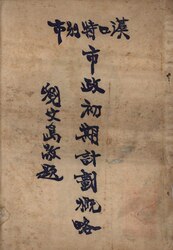 漢口特別市
市政初期計劃概略
劉文島敬題